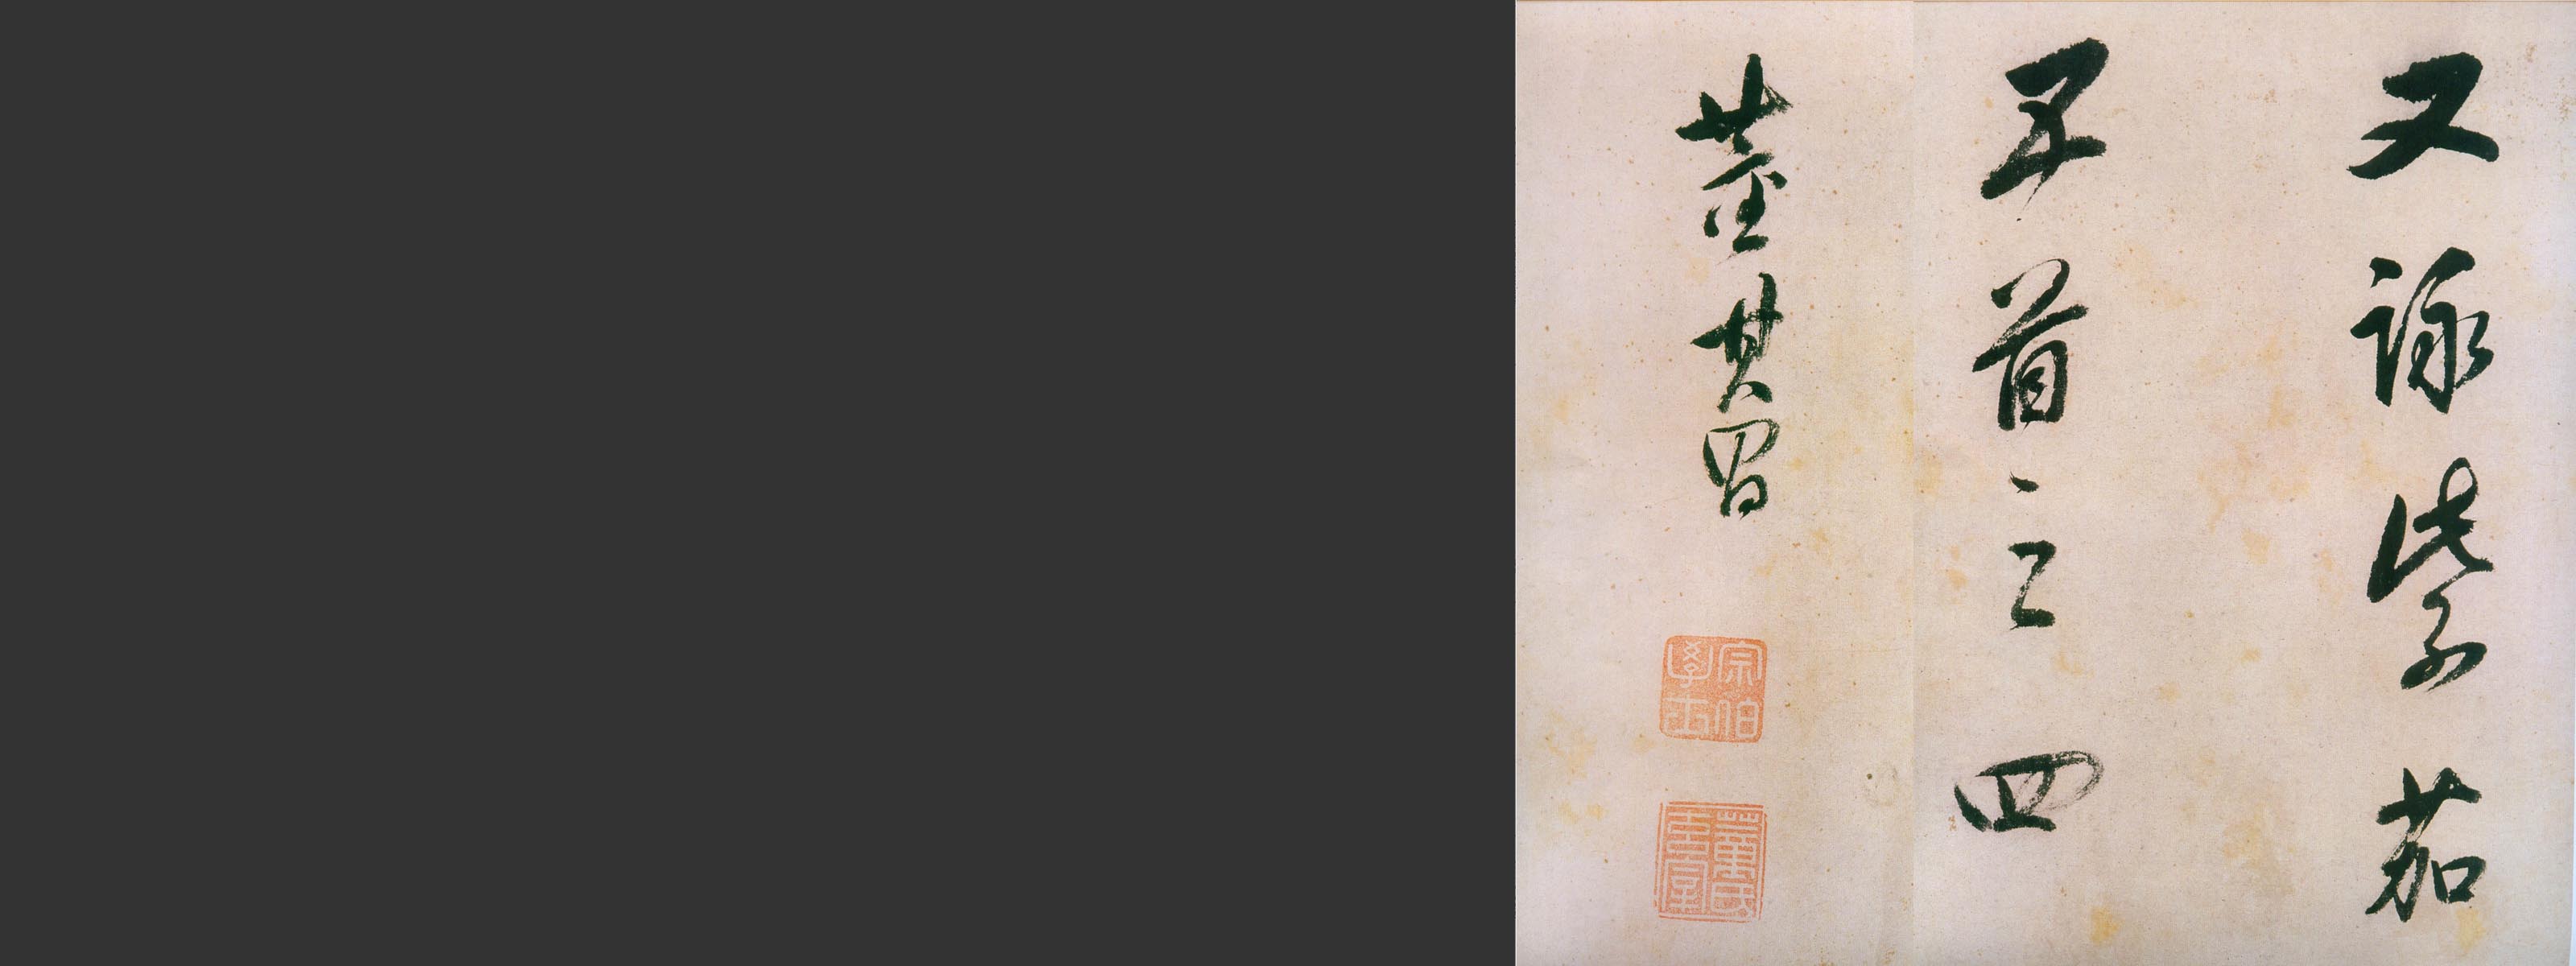 又詠紫茄
首之四
董其昌
宗伯學士
董氏玄宰